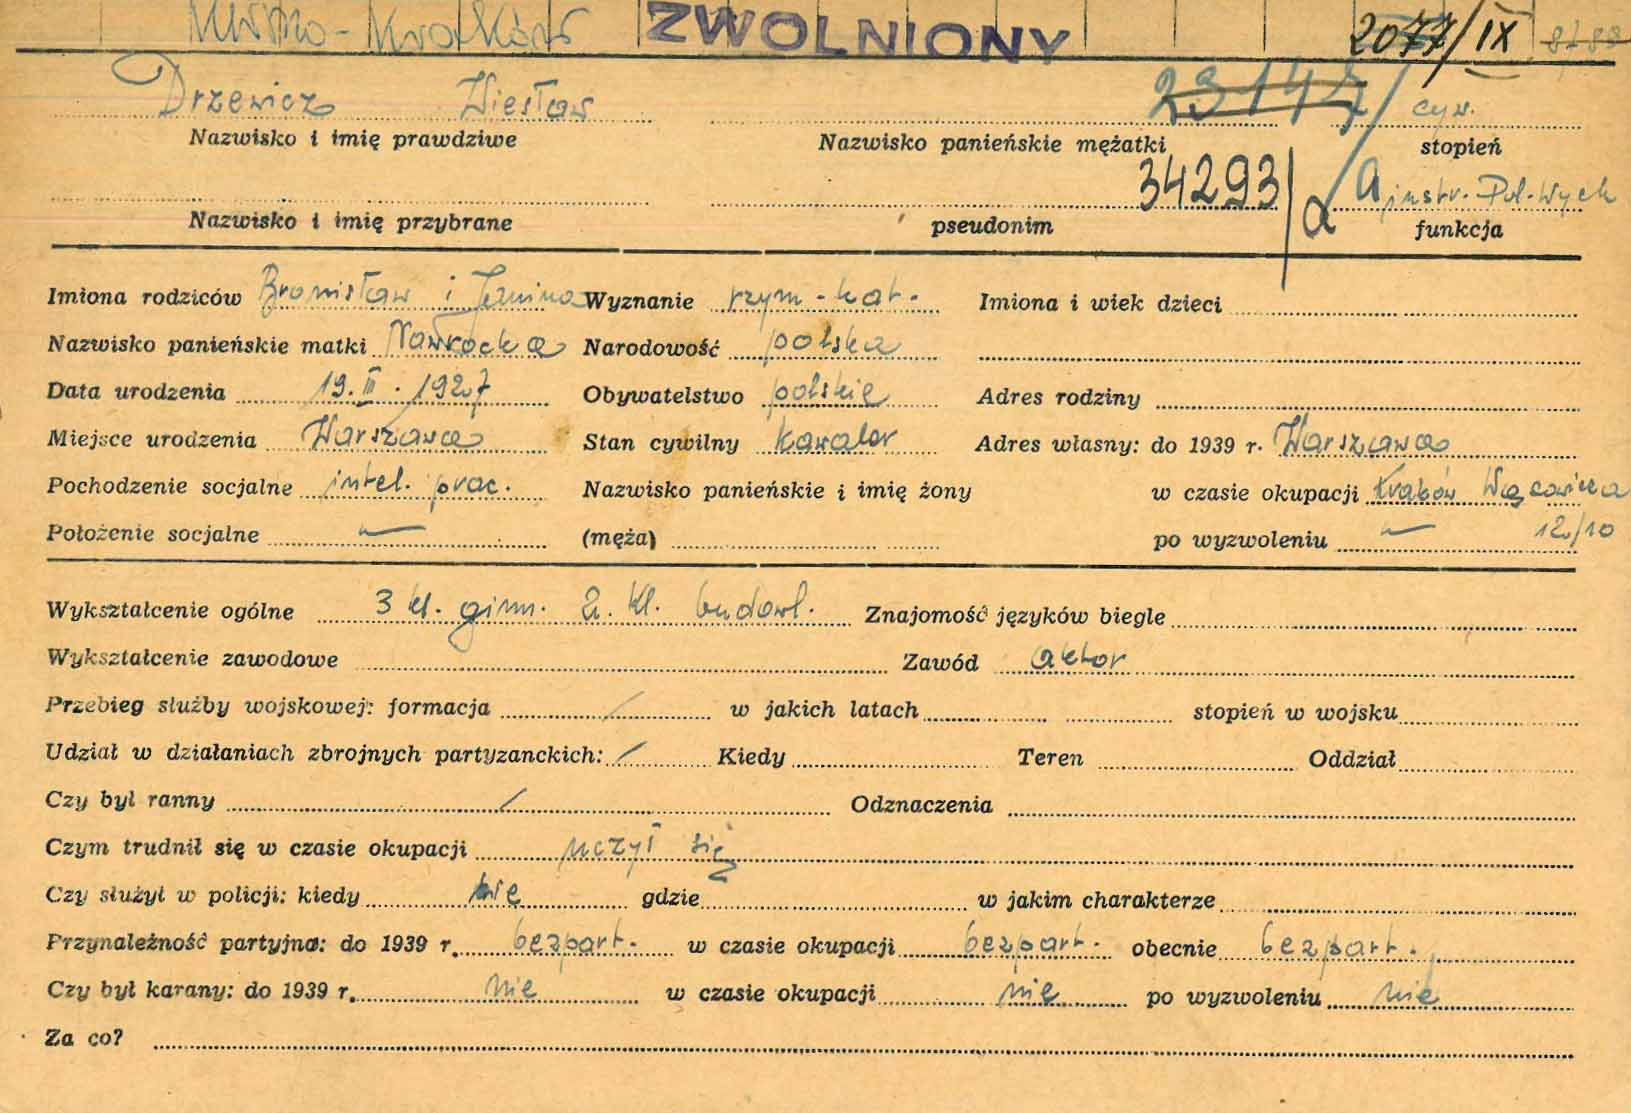 Kraków ZWOLNIONY 2077/IX
Drzewicz Wiesław 23147/ cyw.
Nazwisko i imię prawdziwe Nazwisko panieńskie mężatki stopień
34293/a instr. Pol-Wych
Nazwisko i imię przybrane pseudonim funkcja
Imiona rodziców Bronisław i Janina Wyznanie rzym-kat. Imiona i wiek dzieci
Nazwisko panieńskie matki Nawrocka Narodowość polska
Data urodzenia 19.III.1927 Obywatelstwo polskie Adres rodziny
Miejsce urodzenia Warszawa Stan cywilny kawaler Adres własny: do 1939 r. Warszawa
Pochodzenie socjalne intel. prac. Nazwisko panieńskie i imię żony w czasie okupacji Kraków
Położenie socjalne (męża) po wyzwoleniu 12/10
Wykształcenie ogólne 3 kl. gimn. 2. kl. budowl. Znajomość języków biegle
Wykształcenie zawodowe Zawód aktor
Przebieg służby wojskowej: formacja / w jakich latach stopień w wojsku
Udział w działaniach zbrojnych partyzanckich: / Kiedy Teren Oddział
Czy był ranny / Odznaczenia
Czym trudnił się w czasie okupacji uczył się
Czy służył w policji: kiedy nie gdzie w jakim charakterze
Przynależność partyjna: do 1939 r. bezpart. w czasie okupacji bezpart. obecnie bezpart.
Czy był karany: do 1939 r. nie w czasie okupacji nie po wyzwoleniu nie
Za co?